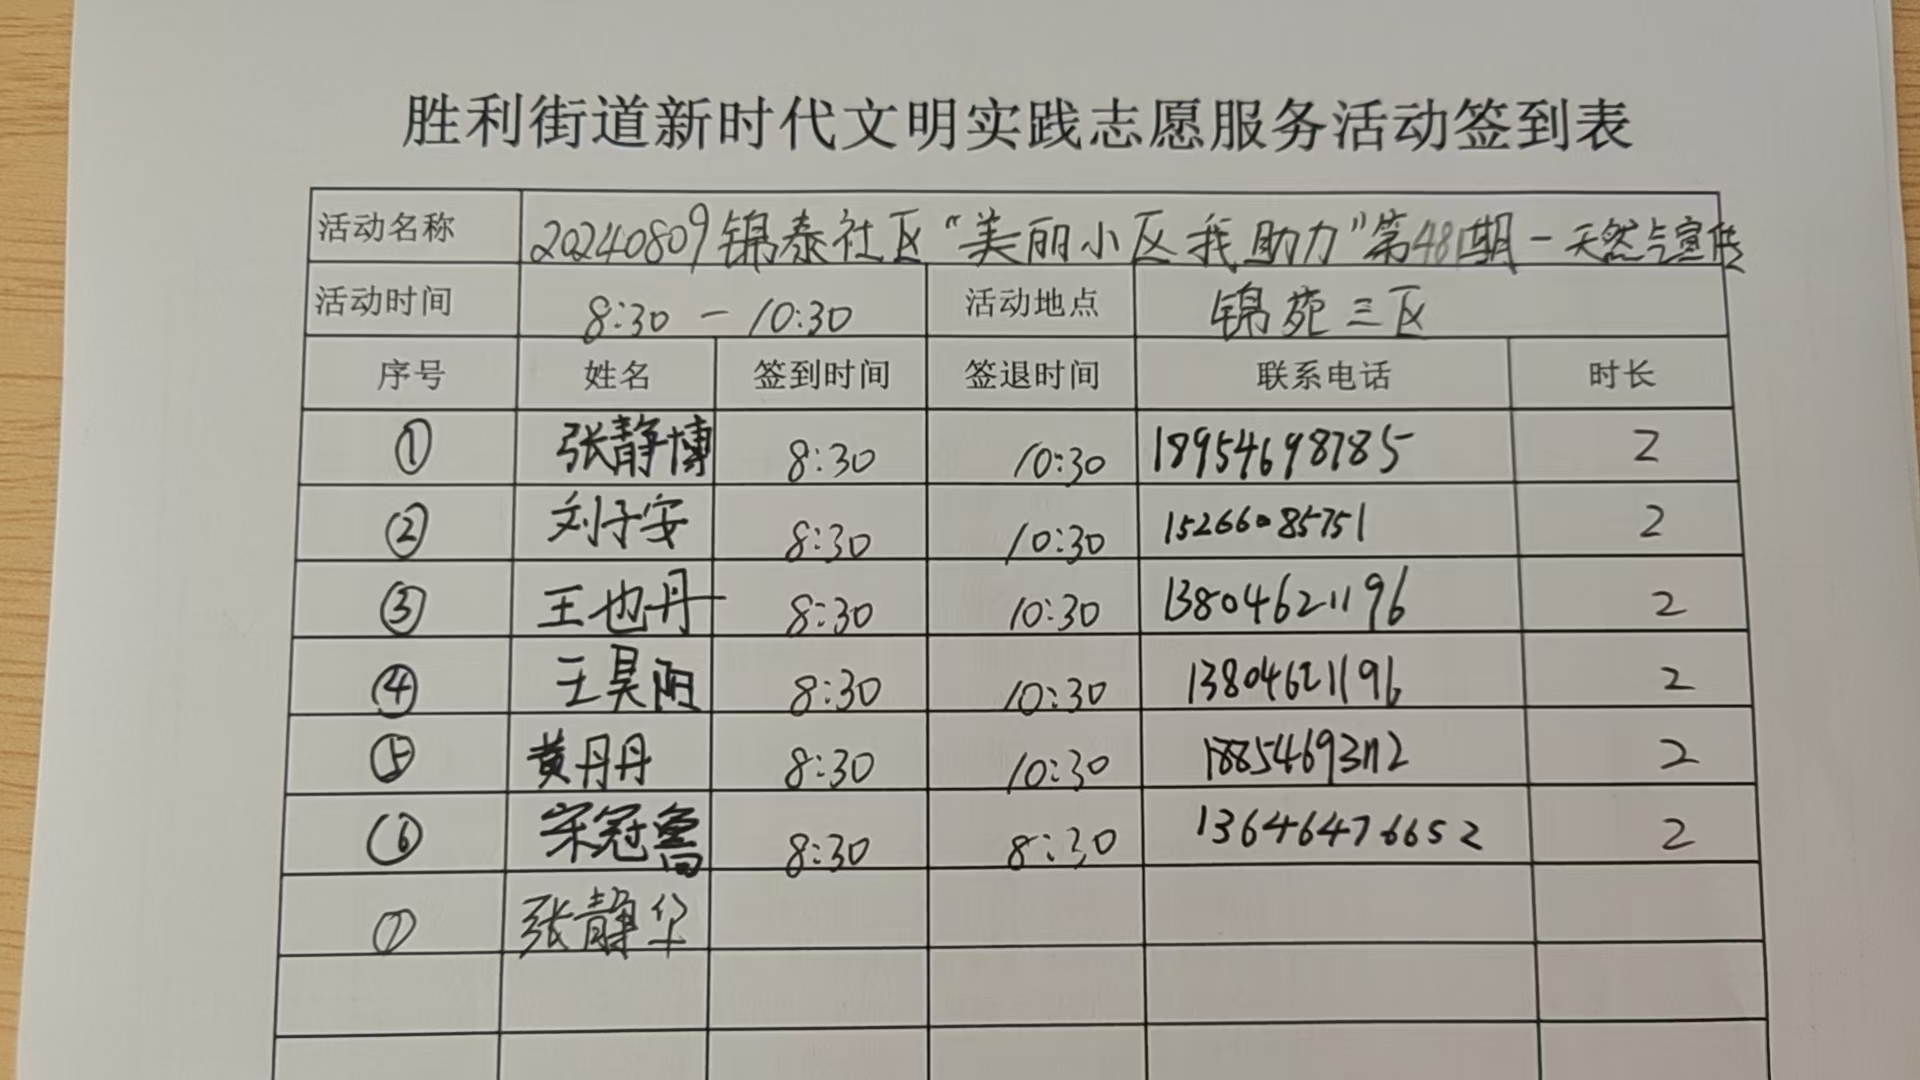 胜利街道新时代文明实践志愿服务活动签到表
活动名称 20240809锦泰社区“美丽小区我助力”第481期－天然气宣传
活动时间 8:30－10:30 活动地点 锦苑三区
序号 姓名 签到时间 签退时间 联系电话 时长
① 张静博 8:30 10:30 18954698785 2
② 刘子安 8:30 10:30 15266085751 2
③ 王也丹 8:30 10:30 13804621196 2
④ 王昊阳 8:30 10:30 13804621196 2
⑤ 黄丹丹 8:30 10:30 18854693112 2
⑥ 宋冠鲁 8:30 8:30 13646476652 2
⑦ 张静华